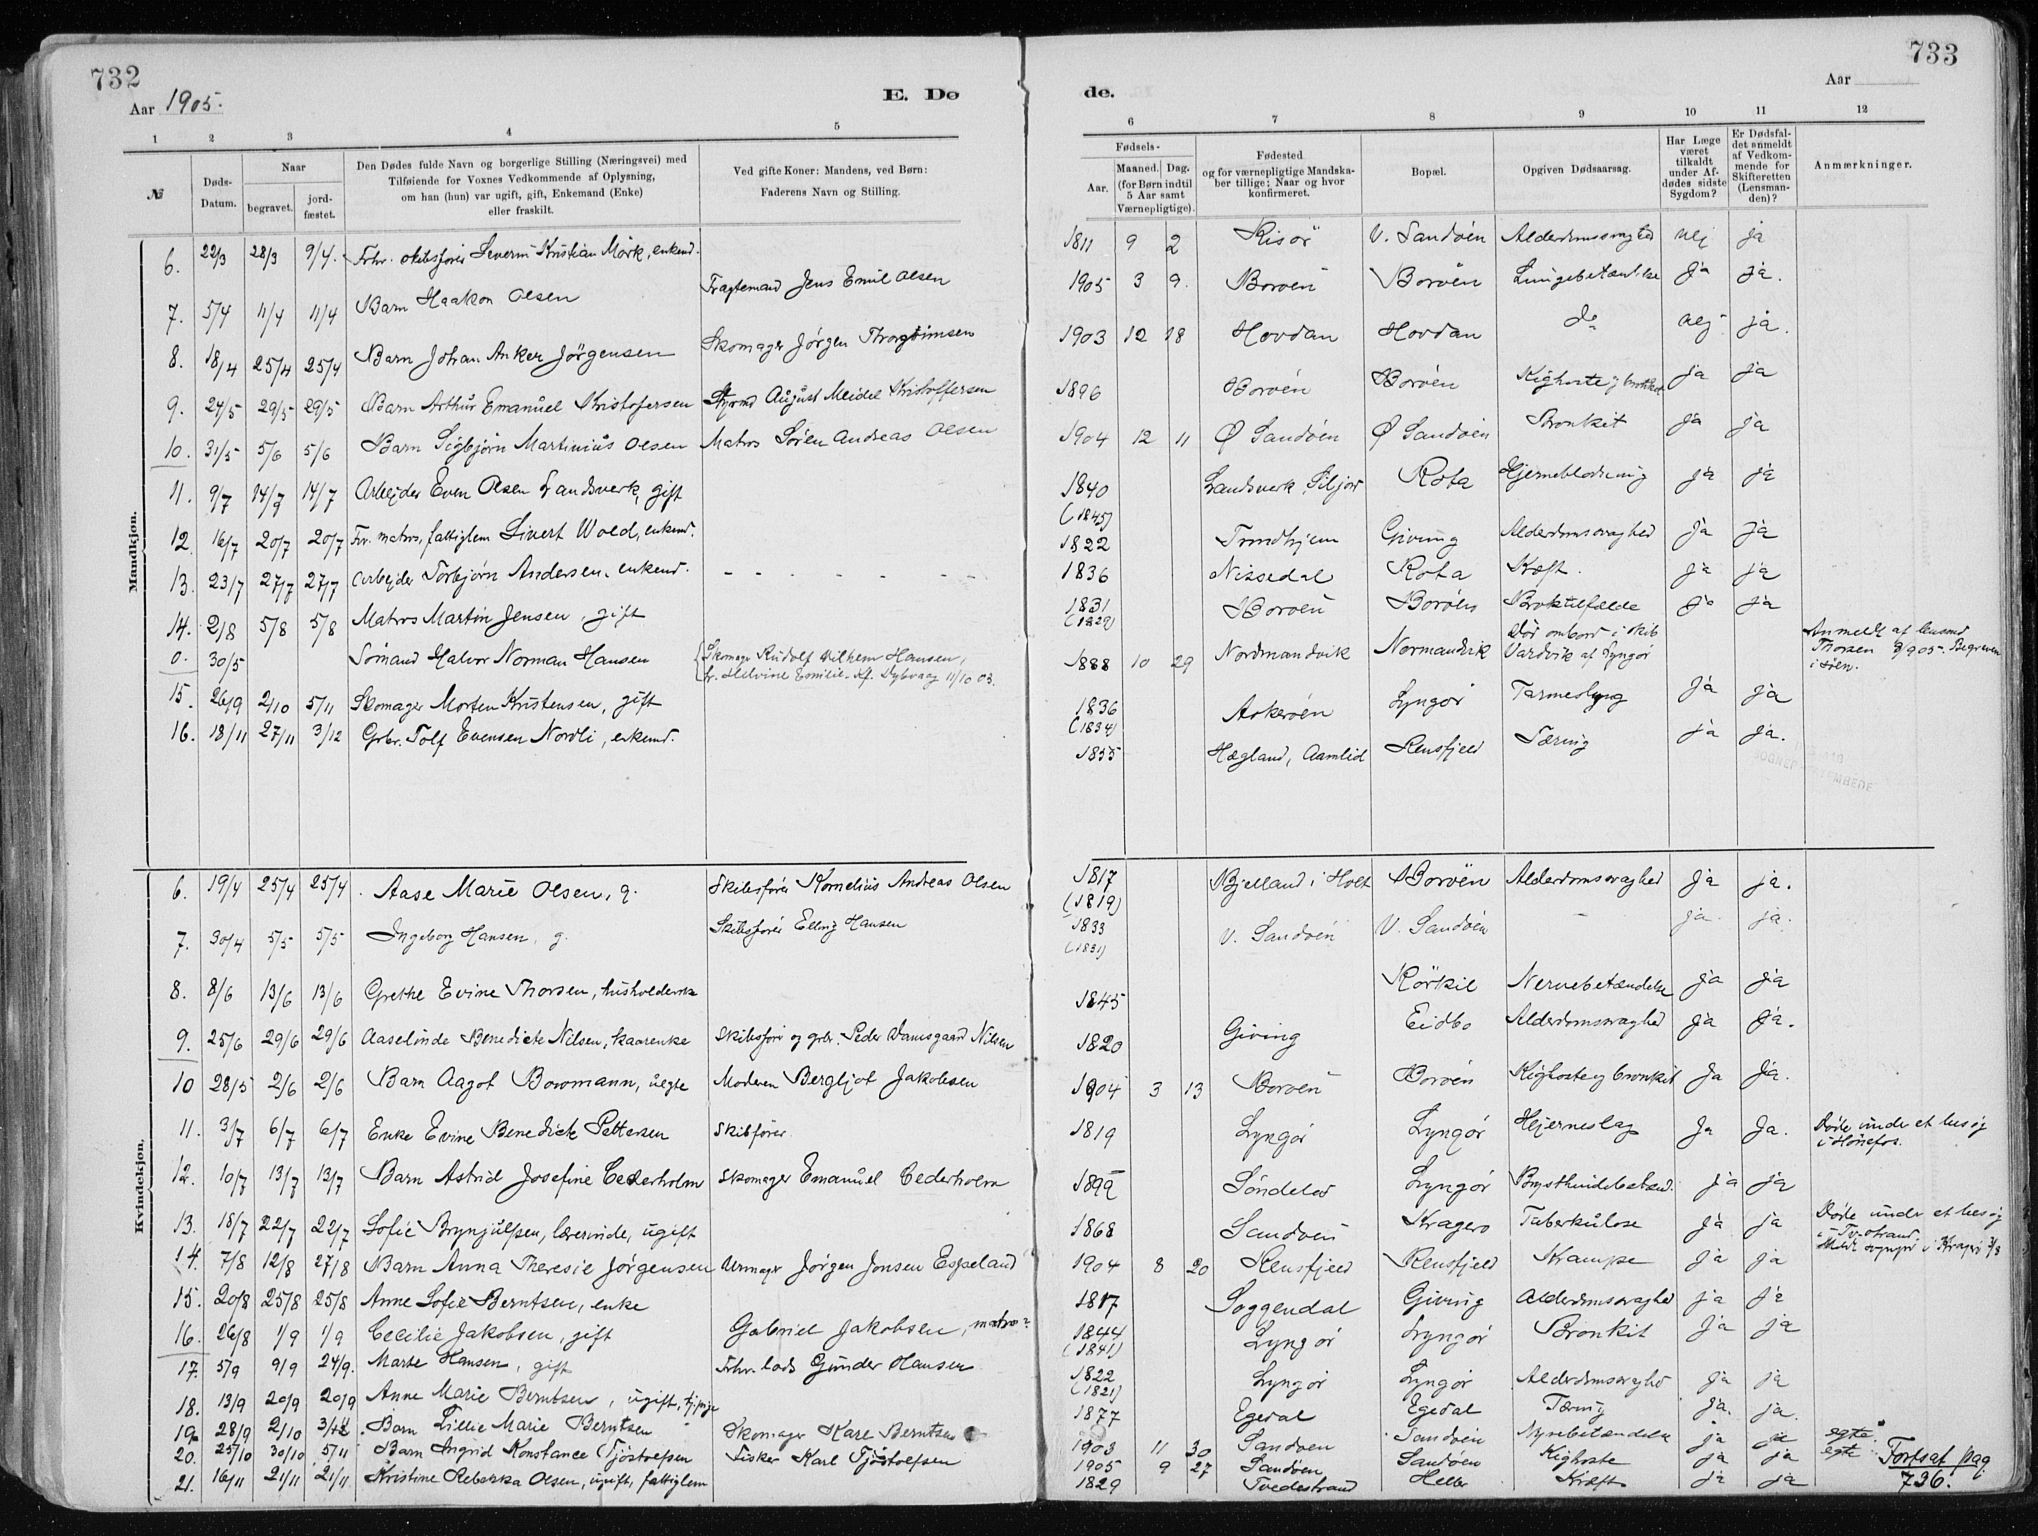 732
Aar 1905.
E. Dø
de.
Aar
733
1 2 3 4 5 6 7 8 9 10 11 12
№
Døds-Datum.
Naar
begravet.
jord-fæstet.
Den Dødes fulde Navn og borgerlige Stilling (Næringsvei) med
Tilføiende for Voxnes Vedkommende af Oplysning,
om han (hun) var ugift, gift, Enkemand (Enke)
eller fraskilt.
Ved gifte Koner: Mandens, ved Børn:
Faderens Navn og Stilling.
Fødsels-
Aar.
Maaned. Dag.
(for Børn indtil
5 Aar samt
Værnepligtige).
Fødested
og for værnepligtige Mandska-
ber tillige: Naar og hvor
konfirmeret.
Bopæl.
Opgiven Dødsaarsag.
Har Læge
været
tilkaldt
under Af-
dødes sidste
Sygdom?
Er Dødsfal-
det anmeldt
af Vedkom-
mende for
Skifteretten
(Lensman-
den)?
Anmærkninger.
Mandkjøn.
6. 22/3 28/3 9/4. Frhv. skibsfører Severin Kristian Mörk, enkem. 1811 9 2 Risör V. Sandöen Alderdomssvaghed nej ja
7. 5/4 11/4 11/4 Barn Haakon Olsen Fragtemand Jens Emil Olsen 1905 3 9. Boröen Boröen Lungebetændelse Ja ja.
8. 18/4 25/4 25/4 Barn Johan Anker Jörgensen Skomager Jørgen 1903 12 18 Hovdan Hovdan do nej ja.
9. 24/5 29/5 29/5 Barn Arthur Emanuel Kristofersen Styrmd August Meidel Kristoffersen 1896 Boröen Boröen Kighoste og bronkit ja ja
10. 31/5 5/6 5/6 Barn Sigbjørn Martinius Olsen Matros Sören Andreas Olsen 1904 12 11 Ø Sandöen Ø Sandöen Bronkit ja ja
11. 9/7 14/7 14/7 Arbejder Even Olsen Landsverk, gift 1840 (1845) Landsverk, Siljor Rota Hjerneblödning ja ja
12. 16/7 20/7 20/7 Frv. matros, fattiglem Sivert Wold, enkemd. 1822 Trondhjem Giving Alderdomssvaghed ja ja
13. 23/7 27/7 27/7 Arbejder Torbjørn Andersen, enkemd. - - - - - - 1836 Nissedal Rota Kræft. ja ja
14. 2/8 5/8 5/8 Matros Martin Jensen, gift 1831 (1829) Boröen Boröen Broktilfælde ja ja
0. 30/5 Sömand Halvor Norman Hansen Skomager Rudolf Vilhelm Hansen, Helvine Emilie. Kf. Dybvaag 11/10 03. 1888 10 29 Nordmandvik Normandvik Död ombord i skib Vardvik af Lyngör Anmeldt af lensmd. Thorsen 905. Begraven i söen.
15. 26/9 2/10 5/11 Skomager Morten Kristensen, gift 1836 (1834) Askeröen Lyngör Tarmeslyng ja ja
16. 18/11 27/11 3/12 Grbr. Tolf Evensen Nordli, enkemd. 1855 Hægland, Aamlid Rensfjeld Tæring ja ja.
Kvindekjøn.
6. 19/4 25/4 25/4 Aase Marie Olsen, g. Skibsfører Kornelius Andreas Olsen 1817 (1819) Bjelland i Holt Boröen Alderdomssvaghed Ja ja.
7. 30/4 5/5 5/5 Ingeborg Hansen, g. Skibsfører Elling Hansen 1833 (1831) V. Sandöen V. Sandöen - ja. ja.
8. 8/6 13/6 13/6 Grethe Evine Thorsen, husholderske 1845 Rörkil Nervebetændelse ja ja
9. 25/6 29/6 29/6 Aaselinde Benedicte Nilsen, kaarenke Skibsfører og grbr. Peder Damsgaard Nilsen 1820 Giving Eidbo Alderdomssvaghed ja ja.
10 28/5 2/6 2/6 Barn Aagot Bowmann, uegte Moderen Bergljot Jakobsen 1904 3 13 Boröen Boröen Kighoste og bronkit Ja Ja.
11. 3/7 6/7 6/7 Enke Evine Benedicte Pettersen Skibsfører 1819 Lyngör Lyngör Hjerneslag Ja Ja. Døde under et besøg i Hönefos.
12. 10/7 13/7 13/7 Barn Astrid Josefine Cederholm Skomager Emanuel Cederholm 1899 Söndeled Lyngör Brysthindebetænd. ja ja
13. 18/7 22/7 22/7 Sofie Brynjulfsen, lærerinde, ugift 1868 Sandöen Kragerö Tuberkulose ja ja Døde under et besøg i Tv.strand.
14. 7/8 12/8 27/8 Barn Anna Theresie Jørgensen Urmager Jørgen Jonsen Espeland 1904 8 20 Rensfjeld Rensfjeld Krampe ja ja
15. 20/8 25/8 25/8 Anne Sofie Berntsen, enke 1817 Soggendal Giving Alderdomssvaghed ja ja
16. 26/8 1/9 1/9 Cecilie Jakobsen, gift Gabriel Jakobsen, matros 1844 (1841) Lyngör Lyngör Bronkit ja ja
17. 5/9 9/9 24/9. Marte Hansen, gift Frhv. lods Gunder Hansen 1822 (1821) Lyngör Lyngör Alderdomssvaghed ja ja
18. 13/9 20/9 20/9 Anne Marie Berntsen, ugift, tj.pige 1877 Egedal Egedal Tæring ja. ja.
19. 28/9 2/10 Barn Lillie Marie Berntsen Skomager Karl Berntsen 1903 11 30 Sandöen Sandöen Nyrebetændelse ja ja egte
20. 25/10 30/10 5/11 Barn Ingrid Konstance Tjöstolfsen Fisker Karl Tjöstolfsen 1905 9 27 Sandöen Sandöen Kighoste ja ja egte
21. 16/11 21/11 21/11 Kristine Rebekka Olsen, ugift, fattiglem 1829 Tvedestrand Helle Kræft ja ja
Fortsat pag
736.